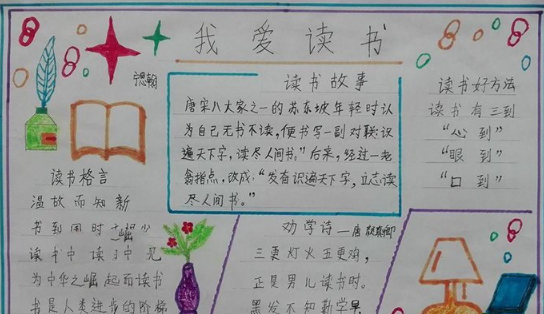 我爱读书
读书故事
唐宋八大家之一的苏东坡年轻时认
为自己无书不读，便书写一副对联"识
遍天下字，读尽人间书。"后来，经过一老
翁指点，改成："发奋识遍天下字，立志读
尽人间书。"
读书好方法
读书有三到
"心到"
"眼到"
"口到"
读书格言
温故而知新
书到用时
读书中读
为中华之崛起而读书
书是人类进步的阶梯
劝学诗—唐 颜真卿
三更灯火五更鸡，
正是男儿读书时。
黑发不知勤学早